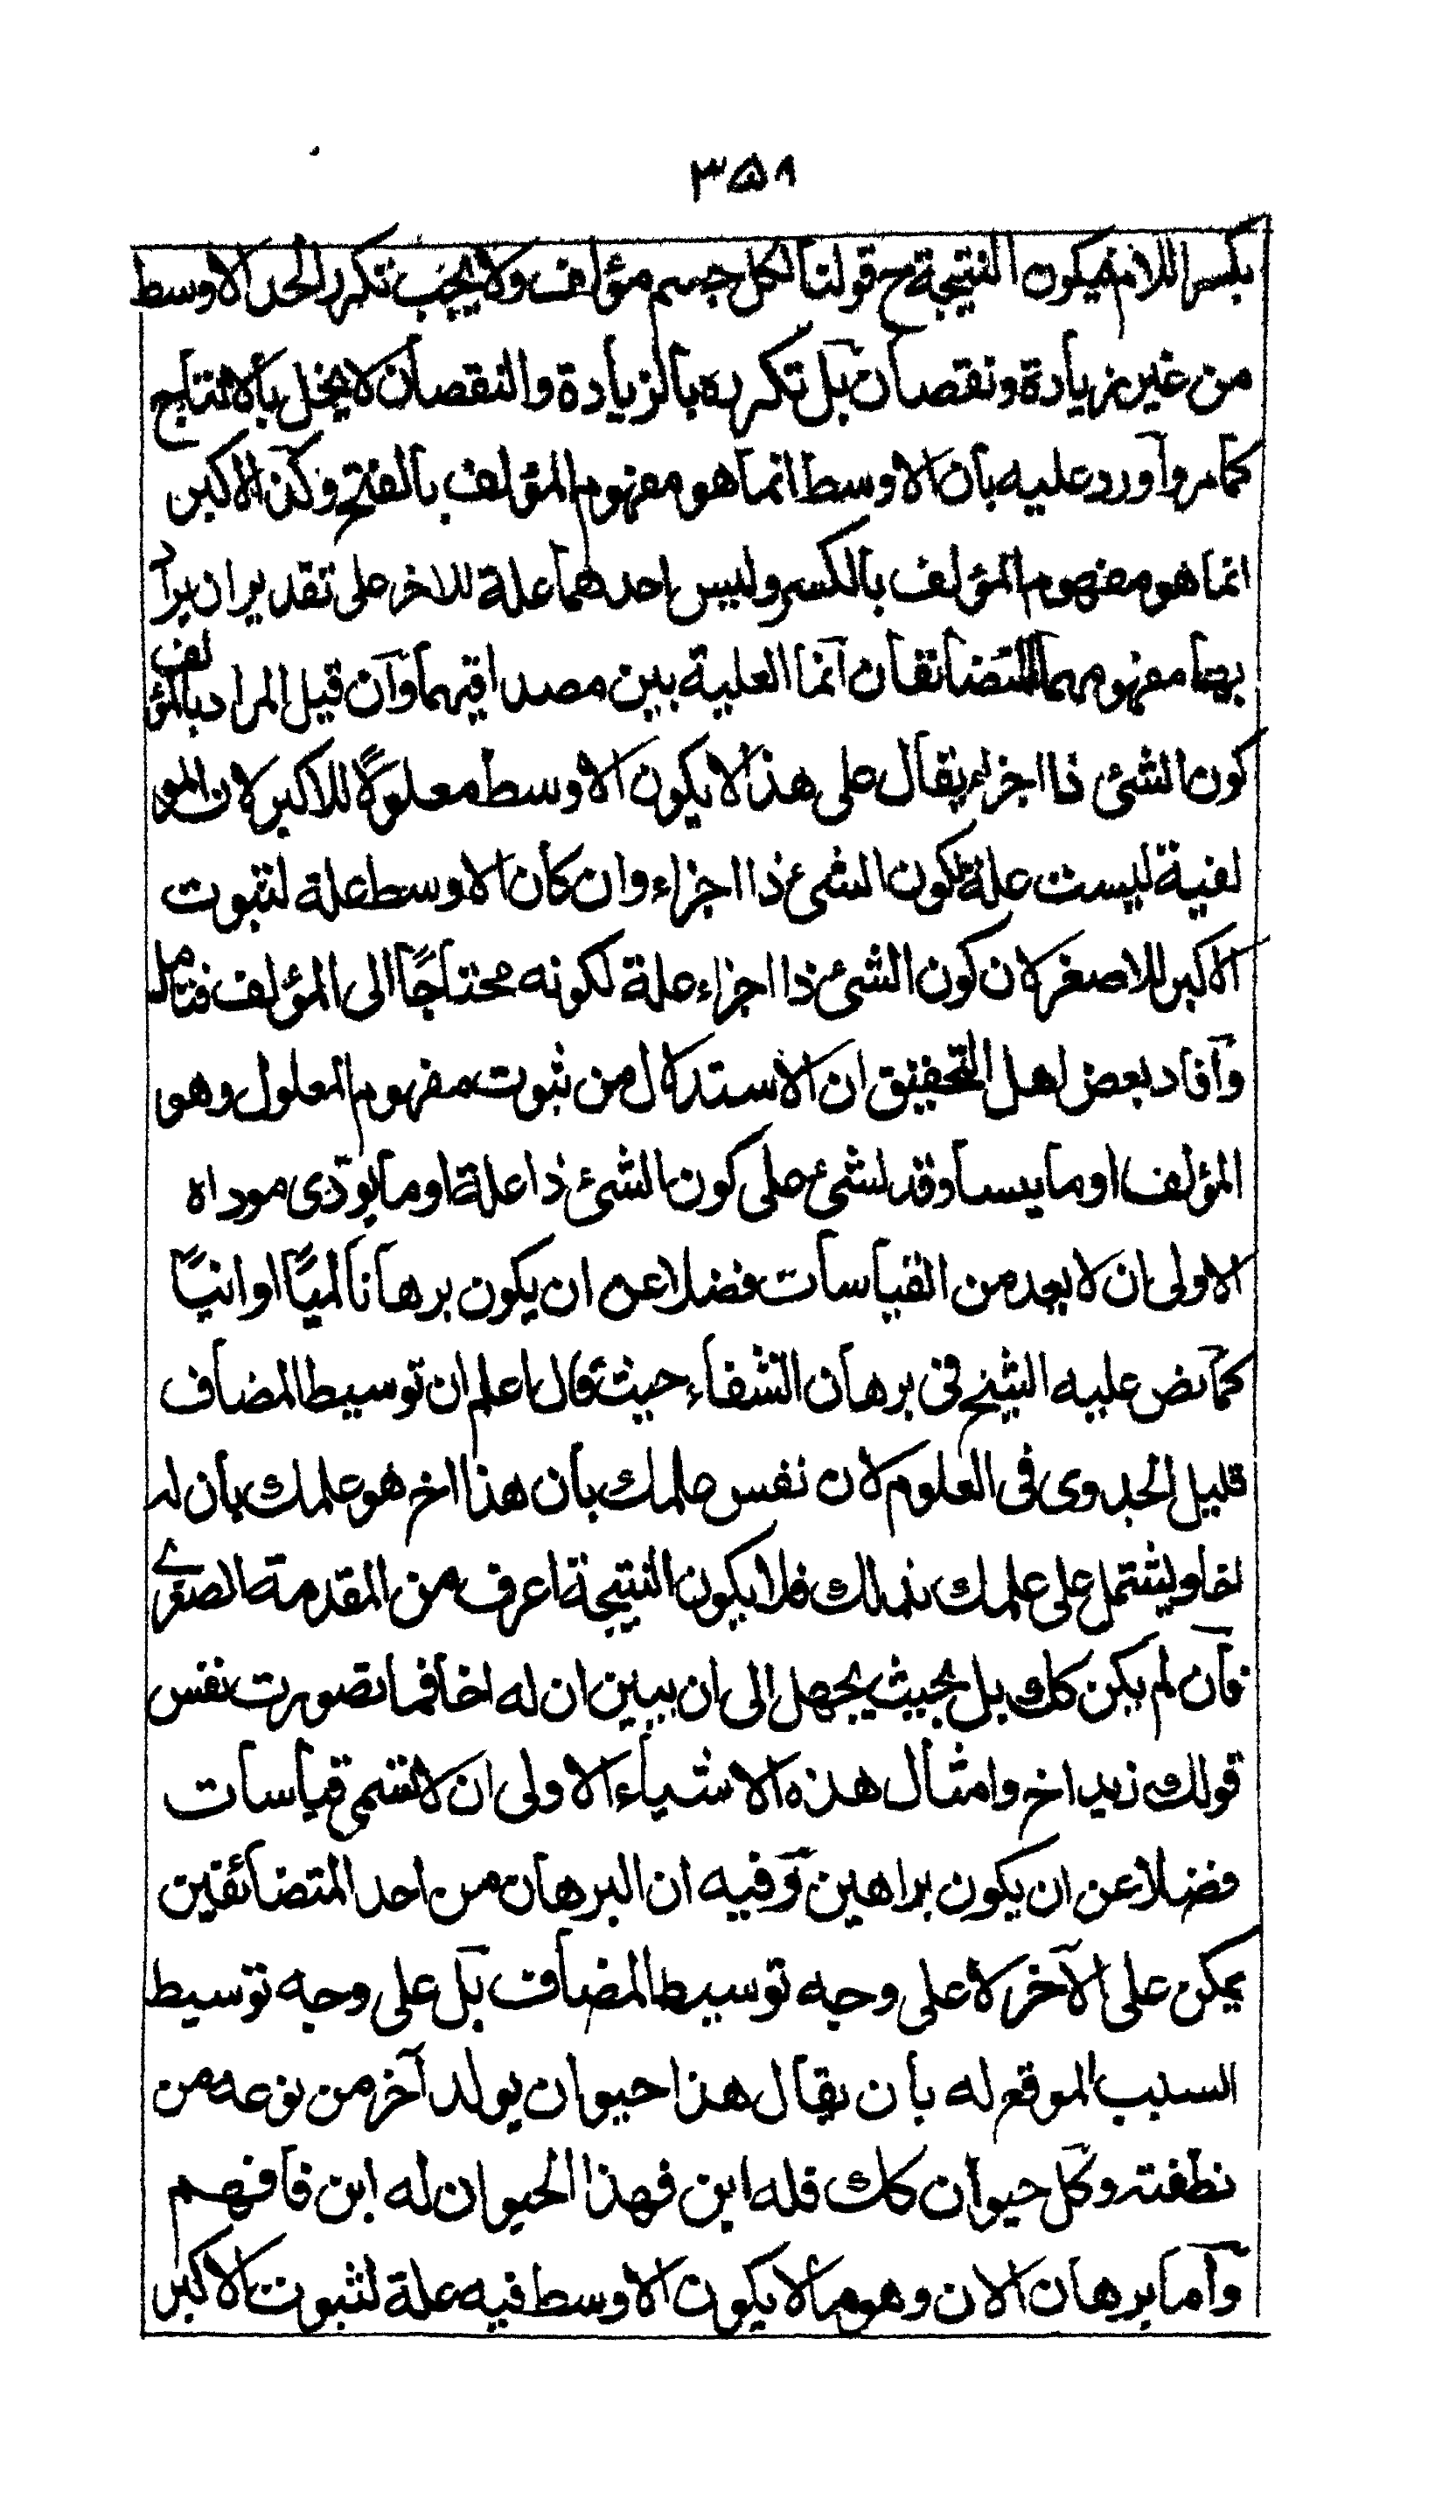 ۳۵۸
بكسر اللام فيكون النتيجة ح قولنا لكل جسم مؤلف ولا يجب تكرر الحد الاوسط
من غير زيادة ونقصان بل تكرره بالزيادة والنقصان لا يخل بالانتاج
كما مر وآورد عليه بان الاوسط انما هو مفهوم المؤلف بالفتح وكن الاكبر
انما هو مفهوم المؤلف بالكسر وليس احدهما علة للاخر على تقدير ان يراد
بهما مفهومهما المتضائفان انما العلية بين مصداقيهما وآن قيل المراد بالمؤلف
كون الشئ ذا اجزاء يقال على هذا لا يكون الاوسط معلولًا للاكبر لان المو
لفية ليست علة لكون الشئ ذا اجزاء وان كان الاوسط علة لثبوت
الاكبر للاصغر لان كون الشئ ذا اجزاء علة لكونه محتاجًا الى المؤلف فتامل
وآفاد بعض اهل التحقيق ان الاستدلال من ثبوت مفهوم المعلول وهو
المؤلف او ما يساوقه لشئ على كون الشئ ذا علة او ما يؤدى موداه
الاولى ان لا يعد من القياسات فضلا عن ان يكون برهانا لميًا او انيًا
كما نص عليه الشيخ فى برهان الشفاء حيث قال اعلم ان توسيط المضاف
قليل الجدوى فى العلوم لان نفس علمك بان هذا اخ هو علمك بان له
اخا او يشتمل على علمك بذلك فلا يكون النتيجة اعرف من المقدمة الصغرے
فآن لم يكن كك بل بحيث يجهل الى ان يبين ان له اخا فما تصورت نفس
قولك زيد اخ وامثال هذه الاشياء الاولى ان لا تسمى قياسات
فضلا عن ان يكون براهين وفيه ان البرهان من احد المتضائفين
يمكن على الآخر لا على وجه توسيط المضاف بل على وجه توسيط
السبب الموقع له بان يقال هذا حيوان يولد آخر من نوعه من
نطفته وكل حيوان كك فله ابن فهذا الحيوان له ابن فافهم
وآما برهان الان وهو ما لا يكون الاوسط فيه علة لثبوت الاكبر